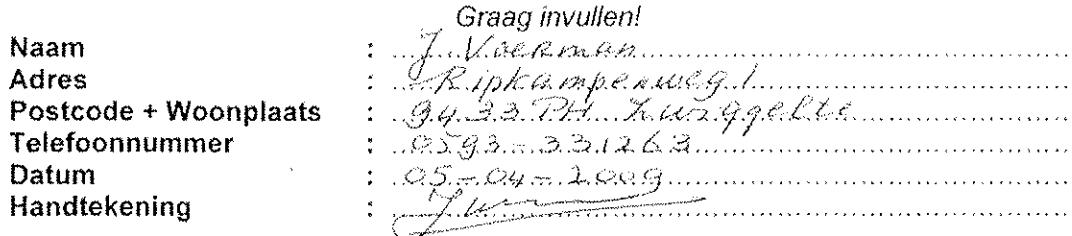 Graag invullen!
Naam : J. Voerman
Adres : Ripkampenweg 1
Postcode + Woonplaats : 9433 PH Zwiggelte
Telefoonnummer : 0593-331263
Datum : 05-04-2009
Handtekening :